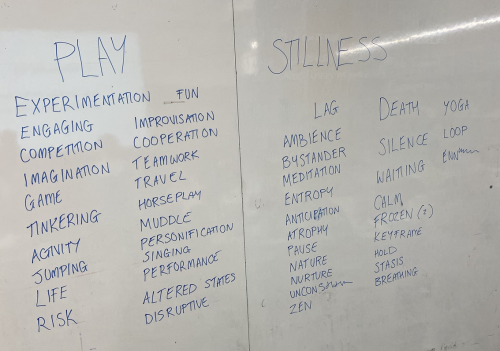 PLAY
EXPERIMENTATION FUN
ENGAGING
COMPETITION
IMAGINATION
GAME
TINKERING
ACTIVITY
JUMPING
LIFE
RISK
IMPROVISATION
COOPERATION
TEAMWORK
TRAVEL
HORSEPLAY
MUDDLE
PERSONIFICATION
SINGING
PERFORMANCE
ALTERED STATES
DISRUPTIVE
STILLNESS
LAG
AMBIENCE
BYSTANDER
MEDITATION
ENTROPY
ANTICIPATION
ATROPHY
PAUSE
NATURE
NURTURE
ZEN
DEATH
SILENCE
WAITING
CALM
FROZEN (?)
KEYFRAME
HOLD
STASIS
BREATHING
YOGA
LOOP